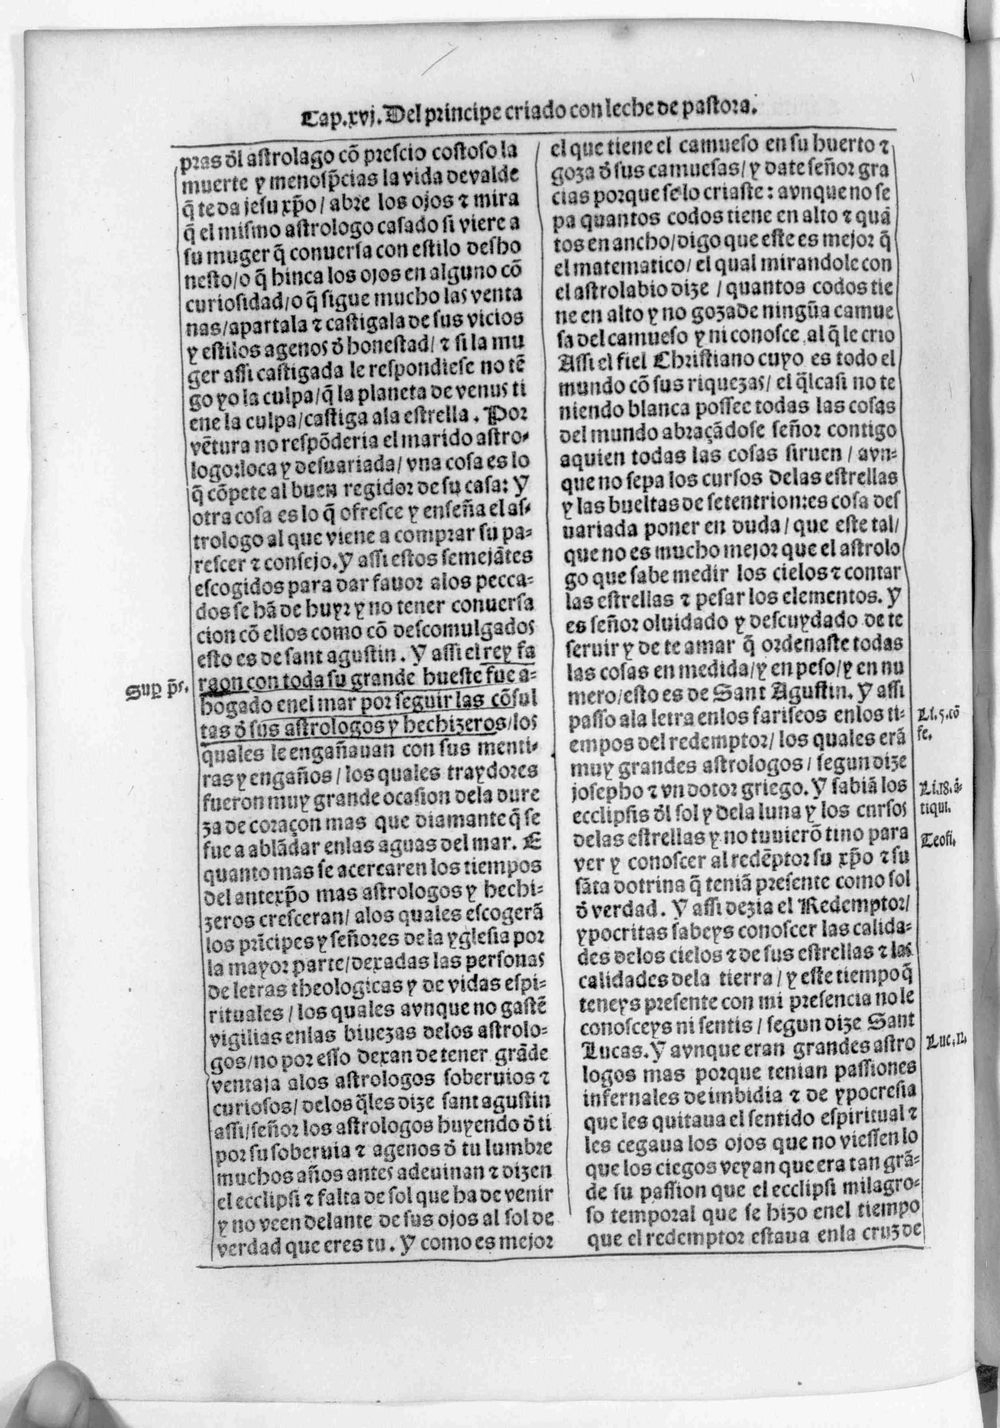 Cap.xvj. Del principe criado con leche de pastora.
pras đl astrolago cõ prescio costoso la
muerte y menosp̃cias la vida devalde
q̃ te da jesu xp̃o/ abre los ojos ⁊ mira
q̃ el mismo astrologo casado si viere a
su muger q̃ conuersa con estilo desho
nesto/o q̃ hinca los ojos en alguno cõ
curiosidad/o q̃ sigue mucho las venta
nas/apartala ⁊ castigala de sus vicios
y estilos agenos đ honestad/ ⁊ si la mu
ger assi castigada le respondiese no tẽ
go yo la culpa/q̃ la planeta de venus ti
ene la culpa/castiga ala estrella. Por
vẽtura no respõderia el marido astro-
logo:loca y desuariada/ vna cosa es lo
q̃ cõpete al buen regidor de su casa: Y
otra cosa es lo q̃ ofresce y enseña el as-
trologo al que viene a comprar su pa-
rescer ⁊ consejo. Y assi estos semejãtes
escogidos para dar fauor alos pecca-
dos se hã de huyr y no tener conuersa
cion cõ ellos como cõ descomulgados
esto es de sant agustin. Y assi el rey fa
raon con toda su grande hueste fue a-
hogado enel mar por seguir las cõsul
tas đ sus astrologos y hechizeros/los
quales le engañauan con sus menti-
ras y engaños/los quales traydores
fueron muy grande ocasion dela dure
za de coraçon mas que diamante q̃ se
fue a ablãdar enlas aguas del mar. E
quanto mas se acercaren los tiempos
del antexp̃o mas astrologos y hechi-
zeros cresceran/ alos quales escogerã
los prĩcipes y señores de la yglesia por
la mayor parte/dexadas las personas
de letras theologicas y de vidas espi-
rituales/ los quales avnque no gastẽ
vigilias enlas biuezas delos astrolo-
gos/no por esso dexan de tener grãde
ventaja alos astrologos soberuios ⁊
curiosos/ delos q̃les dize sant agustin
assi/señor los astrologos huyendo đ ti
por su soberuia ⁊ agenos đ tu lumbre
muchos años antes adeuinan ⁊ dizen
el ecclipsi ⁊ falta de sol que ha de venir
y no veen delante de sus ojos al sol de
verdad que eres tu. Y como es mejor
Sup p̃s.
el que tiene el camueso en su huerto ⁊
goza đ sus camuesas/ y date señor gra
cias porque se lo criaste: avnque no se
pa quantos codos tiene en alto ⁊ quã
tos en ancho/digo que este es mejor q̃
el matematico/ el qual mirandole con
el astrolabio dize / quantos codos tie
ne en alto y no goza de ningũa camue
sa del camueso y ni conosce al q̃ le crio
Assi el fiel Christiano cuyo es todo el
mundo cõ sus riquezas/ el q̃l casi no te
niendo blanca possee todas las cosas
del mundo abraçãdose señor contigo
aquien todas las cosas siruen / avn-
que no sepa los cursos delas estrellas
y las bueltas de setentrion:es cosa des
uariada poner en duda/ que este tal/
que no es mucho mejor que el astrolo
go que sabe medir los cielos ⁊ contar
las estrellas ⁊ pesar los elementos. Y
es señor oluidado y descuydado de te
seruir y de te amar q̃ ordenaste todas
las cosas en medida/y en peso/y en nu
mero/esto es de Sant Agustin. Y assi
passo ala letra enlos fariseos enlos ti-
empos del redemptor/ los quales erã
muy grandes astrologos / segun dize
josepho ⁊ vn dotor griego. Y sabiã los
ecclipsis đl sol y dela luna y los cursos
delas estrellas y no tuuierõ tino para
ver y conoscer al redẽptor su xp̃o ⁊ su
sãta dotrina q̃ teniã presente como sol
đ verdad. Y assi dezia el Redemptor/
ypocritas sabeys conoscer las calida-
des delos cielos ⁊ de sus estrellas ⁊ las
calidades dela tierra/ y este tiempo q̃
teneys presente con mi presencia no le
conosceys ni sentis / segun dize Sant
Lucas. Y avnque eran grandes astro
logos mas porque tenian passiones
infernales de imbidia ⁊ de ypocresia
que les quitaua el sentido espiritual ⁊
les cegaua los ojos que no viessen lo
que los ciegos veyan que era tan grã-
de su passion que el ecclipsi milagro-
so temporal que se hizo enel tiempo
que el redemptor estaua enla cruz de
Li.5.cõ
fe.
Li.18.ã
tiqui.
Teofi.
Luc.12.